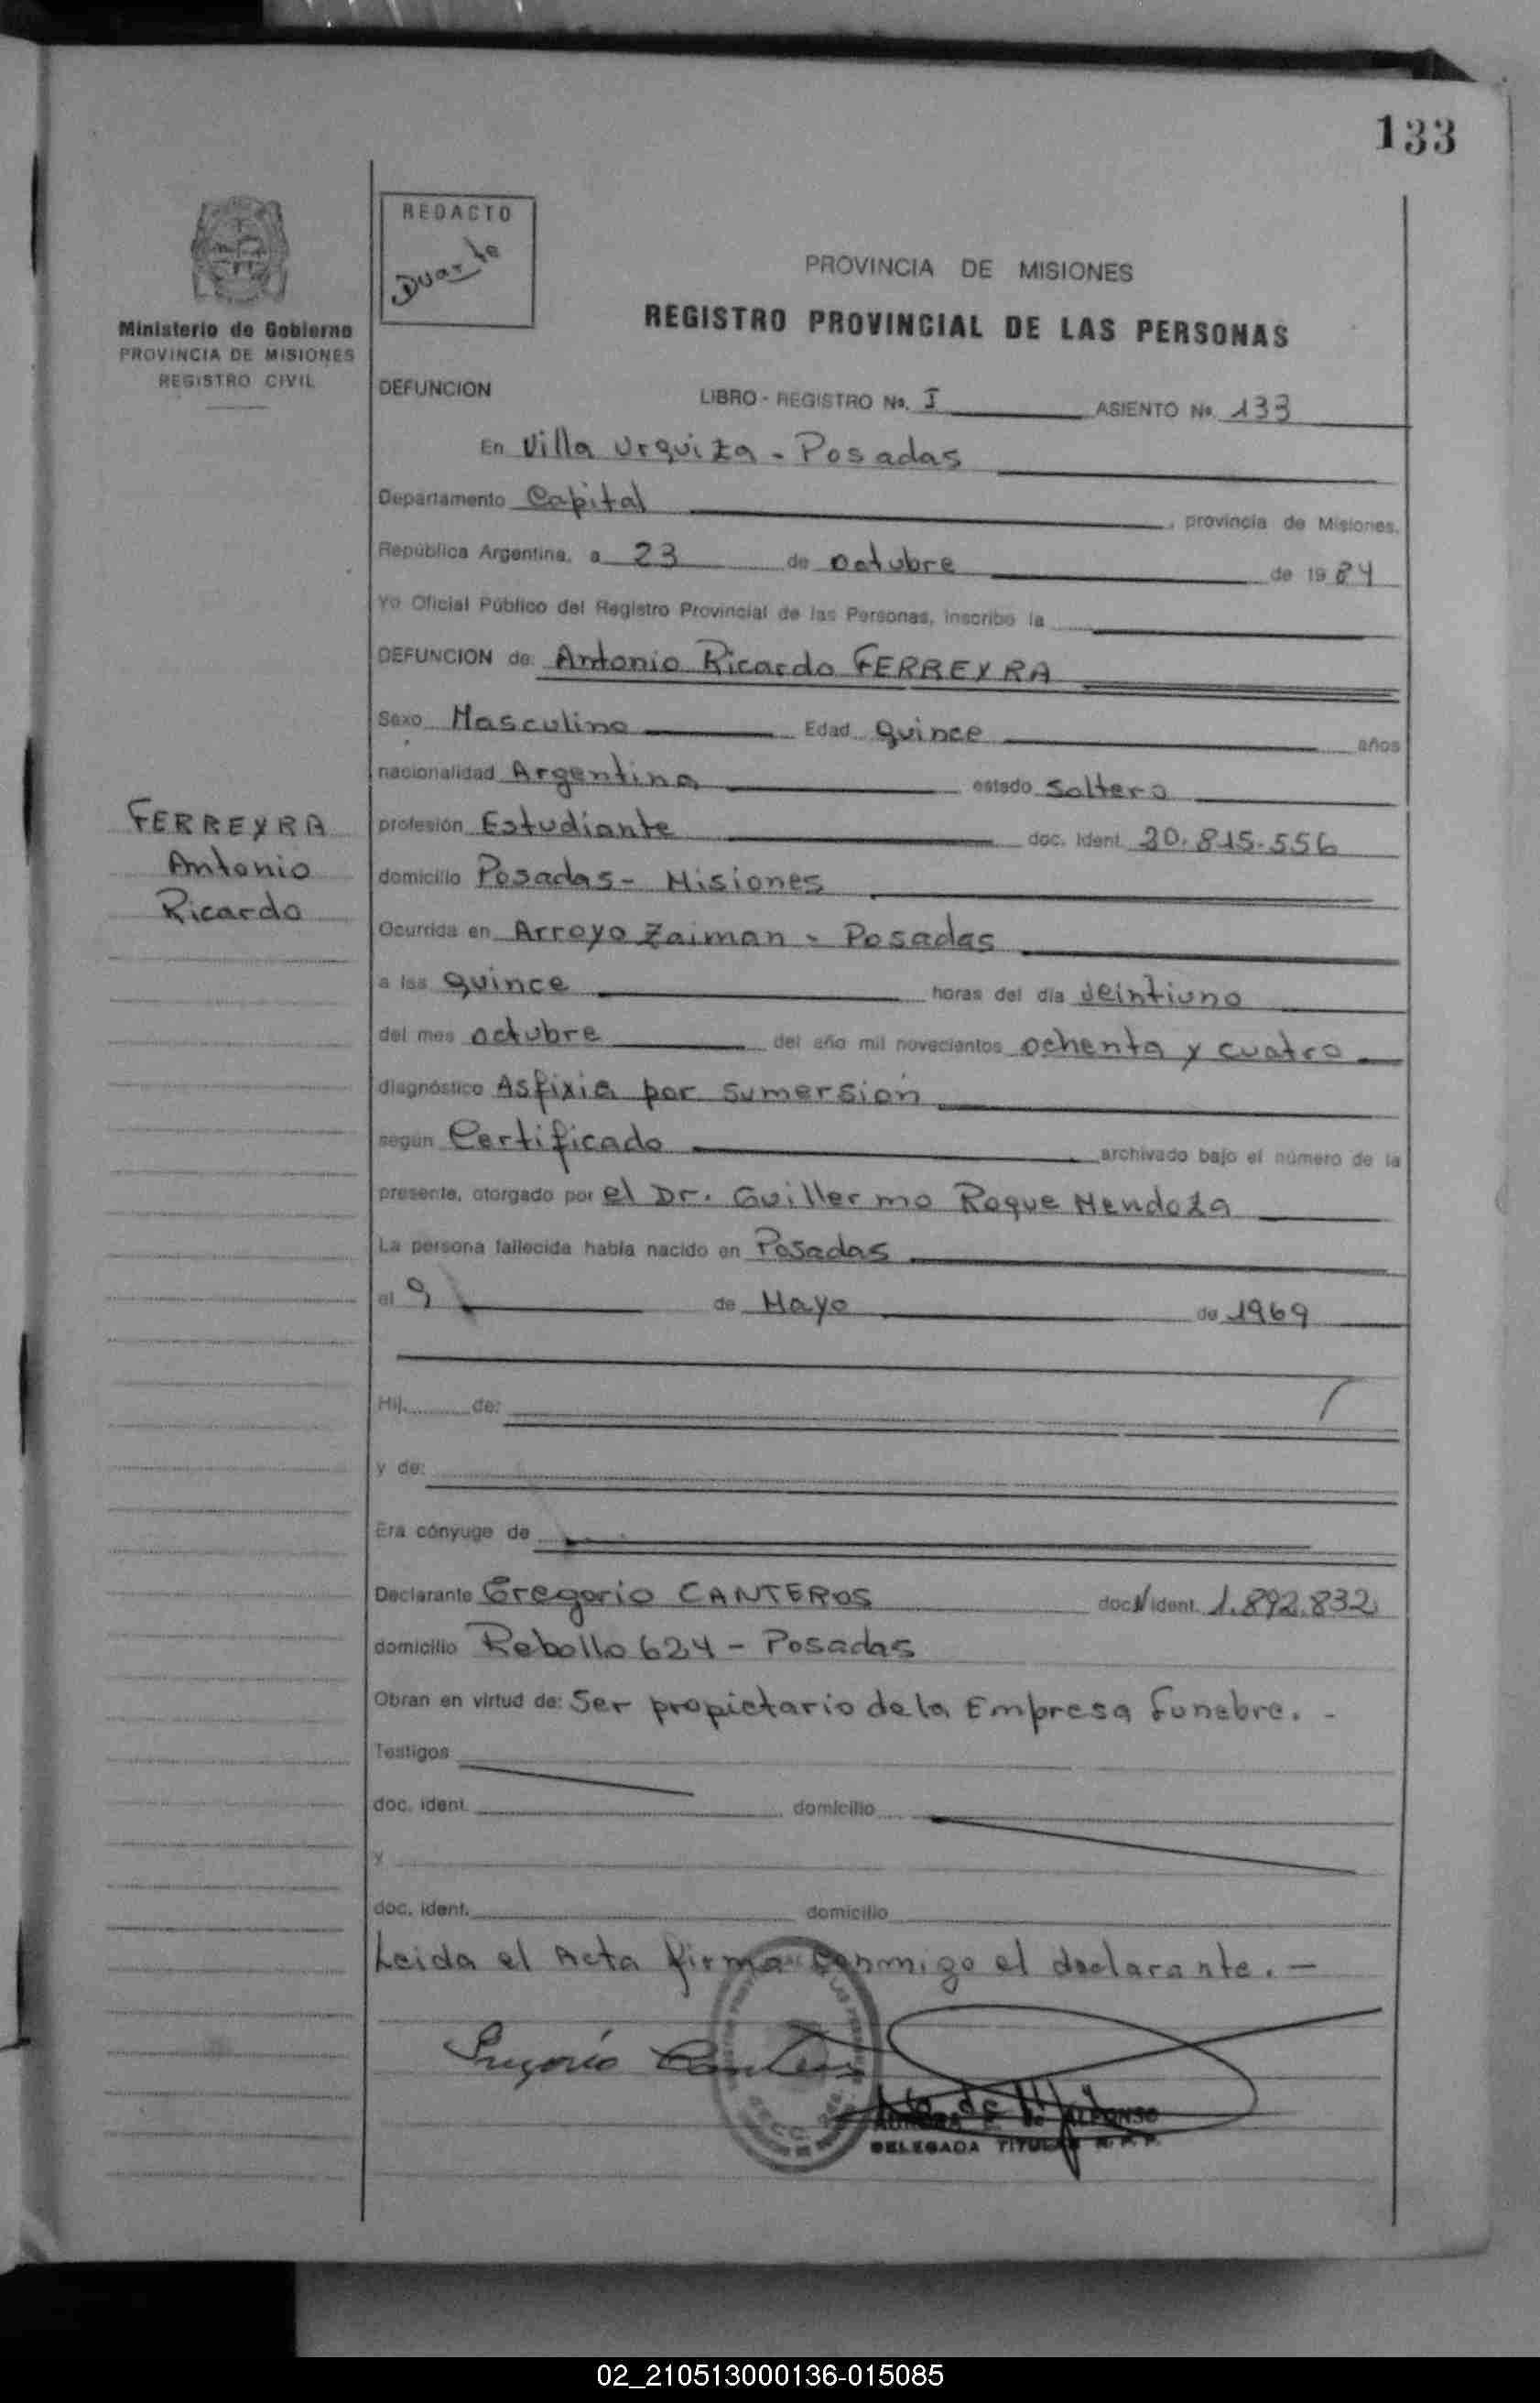 133
REDACTO
Duarte
Ministerio de Gobierno
PROVINCIA DE MISIONES
REGISTRO CIVIL
PROVINCIA DE MISIONES
REGISTRO PROVINCIAL DE LAS PERSONAS
DEFUNCION LIBRO - REGISTRO No. I ASIENTO No. 133
En Villa Urquiza - Posadas
Departamento Capital, provincia de Misiones.
República Argentina, a 23 de octubre de 1984
Yo Oficial Público del Registro Provincial de las Personas, inscribo la
DEFUNCION de: Antonio Ricardo FERREYRA
Sexo Masculino Edad quince años
nacionalidad Argentina estado Soltero
FERREYRA
Antonio
Ricardo
profesión Estudiante doc. ident. 20.815.556
domicilio Posadas - Misiones
Ocurrida en Arroyo Zaiman - Posadas
a las quince horas del día veintiuno
del mes octubre del año mil novecientos ochenta y cuatro
diagnóstico Asfixia por sumersión
según Certificado archivado bajo el número de la
presente, otorgado por el Dr. Guillermo Roque Mendoza
La persona fallecida había nacido en Posadas
el 9 de Mayo de 1969
Hij de:
y de:
Era cónyuge de
Declarante Gregorio CANTEROS doc. ident. 1.892.832
domicilio Rebollo 624 - Posadas
Obran en virtud de: Ser propietario de la Empresa funebre. -
Testigos
doc. ident. domicilio
y
doc. ident. domicilio
Leida el Acta firma conmigo el declarante. -
Gregorio Canteros
ALFONSO
DELEGADA TITULAR R.P.P.
02_210513000136-015085